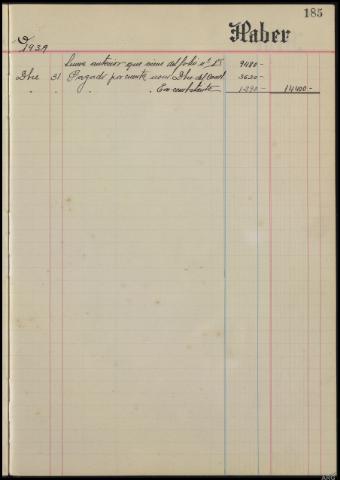 185
Haber
1939
Suma anterior que viene del folio nº 15 9480-
Dbre 31 Pagado por cuenta Dbre del 3630-
" " " " Excombatiente 1290- 14400-